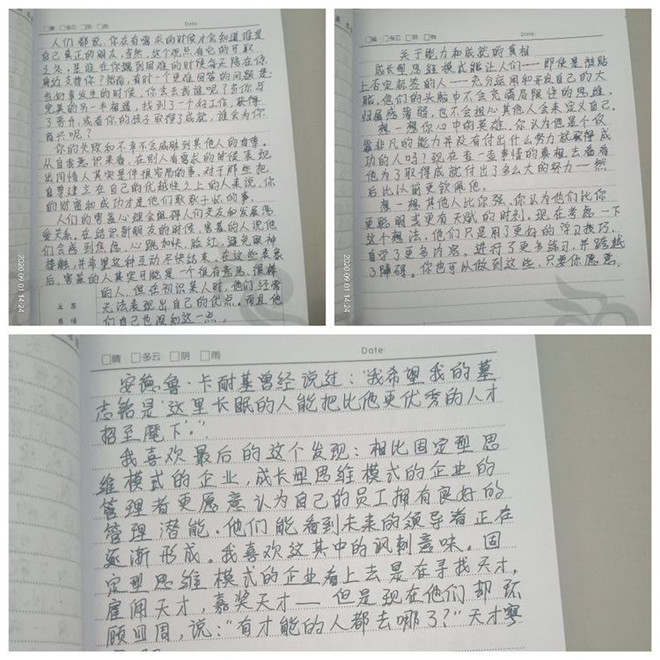 □晴 □多云 □阴 □雨 Date:
人们都说，你在有需求的时候才会知道谁是
自己真正的朋友。当然，这个观点有它的可取
之处，是谁在你遇到困难的时候每天陪在你
身边支持你？然而，有时一个更难回答的问题是：
当好事发生的时候，你会去找谁呢？当你与
完美的另一半相遇，找到了一个好工作，获得
了晋升，或者你的孩子取得了成就，谁会为你
高兴呢？
你的失败和不幸不会威胁到其他人的自尊。
从自我意识来看，在别人有需求的时候表现
出同情人其实是件很容易的事。对于那些把
自尊建立在自己的优越性之上的人来说，你
的财富和成功才是他们
人们的害羞心理会阻碍人们交友和发展恋
爱关系。在结识新朋友的时候，害羞的人说他
们会感到焦虑，心跳加快、脸红，避免眼神
接触，并希望这种互动尽快结束。在这些表象
后，害羞的人其实可能是一个很有意思、很棒
的人，但在初识某人时，他们经常
无法表现出自己的优点，而且他
们自己也深知这一点。
2020 09 01 14:24
□晴 □多云 □阴 □雨
关于能力和成就的真相
成长型思维模式能让人们——即使是被贴
上否定标签的人——充分运用和开发自己的大
脑。他们的头脑中不会充满局限性的思维，
归属感薄弱，也不会担心其他人会来定义自己。
想一想你心中的英雄。你认为他是个仅
靠非凡的能力并没有付出什么努力就获得成
功的人吗？现在查一查事情的真相，去看看
他为了取得成就付出了多么大的努力——然
后比以前更钦佩他。
想一想其他人比你强，你认为他们比你
更聪明或更有天赋的时刻。现在考虑一下
这个想法，他们只是用了更好的学习技巧，
自学了更多内容，进行了更多练习，并跨越
了障碍。你也可以做到这些，只要你愿意。
2020 09 01 14:24
□晴 □多云 □阴 □雨 Date:
安德鲁·卡耐基曾经说过：“我希望我的墓
志铭是‘这里长眠的人能把比他更优秀的人才
招至麾下’。”
我喜欢最后的这个发现：相比固定型思
维模式的企业，成长型思维模式的企业的
管理者更愿意认为自己的员工拥有良好的
管理潜能。他们能看到未来的领导者正在
逐渐形成。我喜欢这其中的讽刺意味。固
定型思维模式的企业看上去是在寻找天才，
雇佣天才，嘉奖天才——但是现在他们却环
顾四周，说：“有才能的人都去哪了？”天才寥